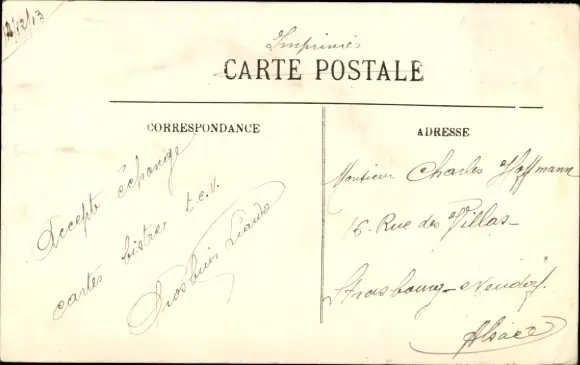 12/12/13
Imprimés
CARTE POSTALE
CORRESPONDANCE
Accepte échange
cartes bistrer t.c.v.
ADRESSE
Monsieur Charles Hoffmann
16 - Rue des Villas -
Strasbourg - Neudorf.
Alsace